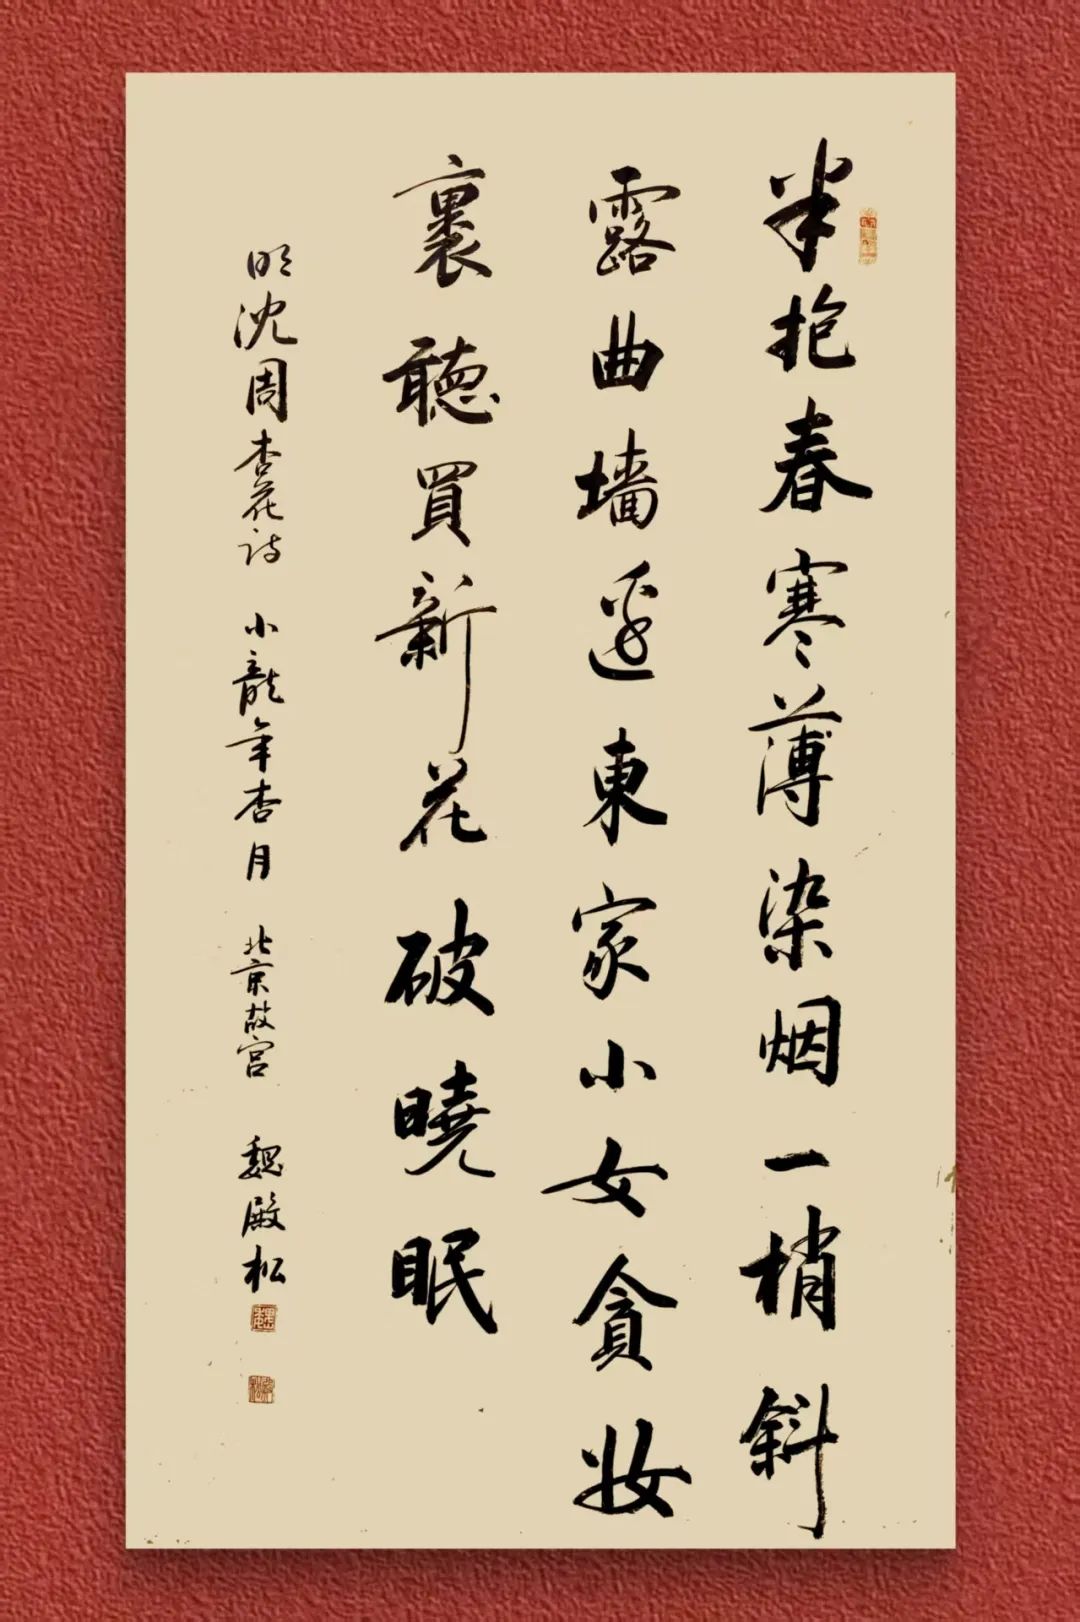 半抱春寒薄染烟一梢斜
露曲墙邊東家小女貪妝
裏聽買新花破曉眠
明沈周杏花詩 小龍年杏月 北京故宫 魏殿松